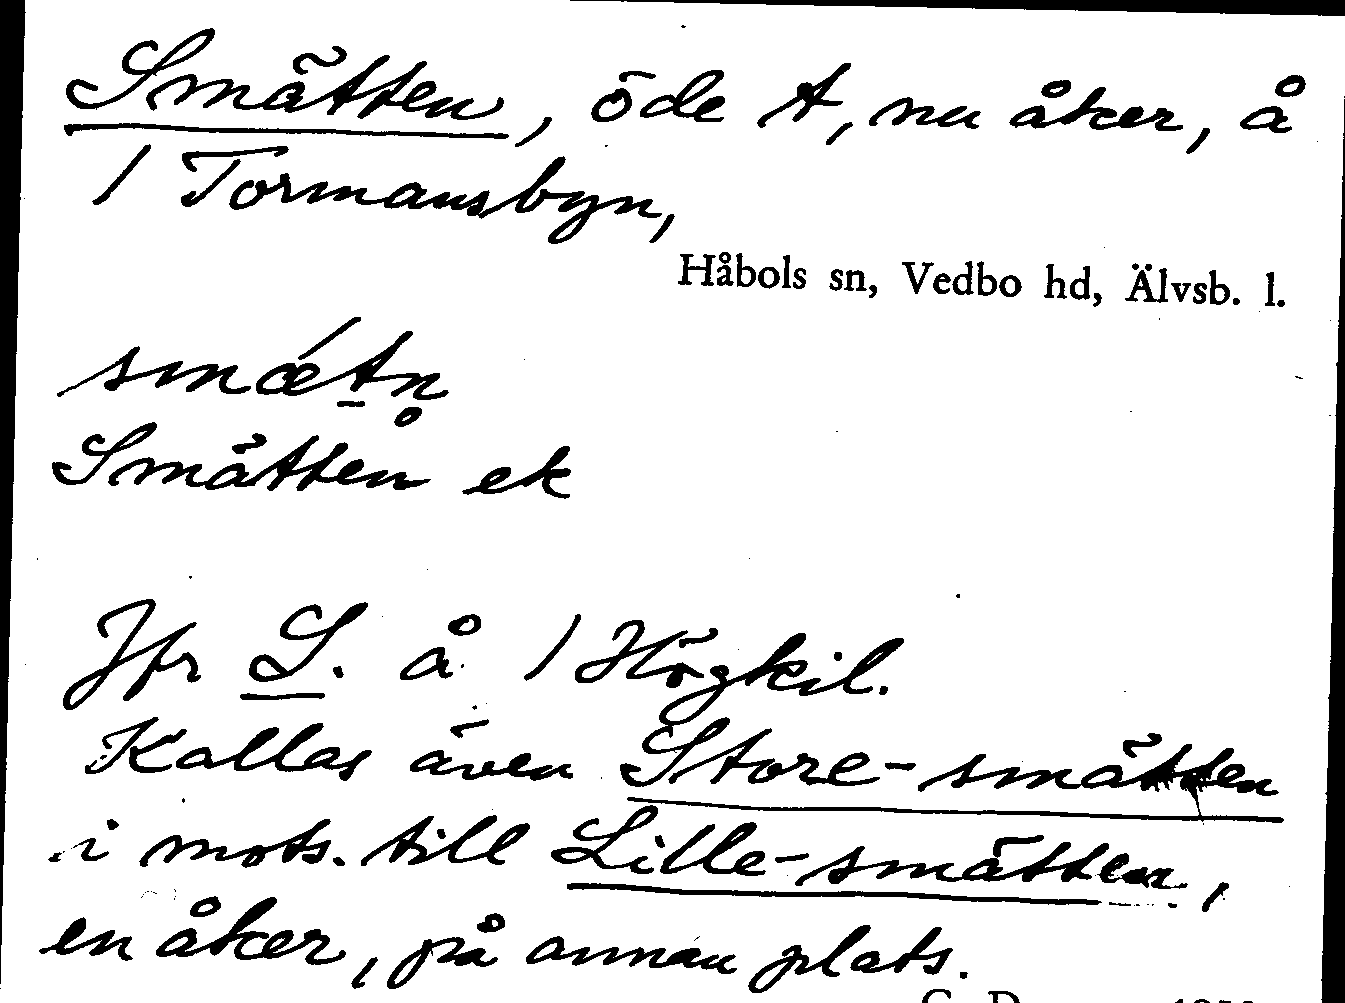 Smätten, öde t, nu åker, å
1 Tormansbyn,
Håbols sn, Vedbo hd, Älvsb. l.
smǽtn̥
Smätten ek
Jfr S. å 1 Högkil.
Kallas även Store-smätten
i mots. till Lille-smätten,
en åker, på annan plats.